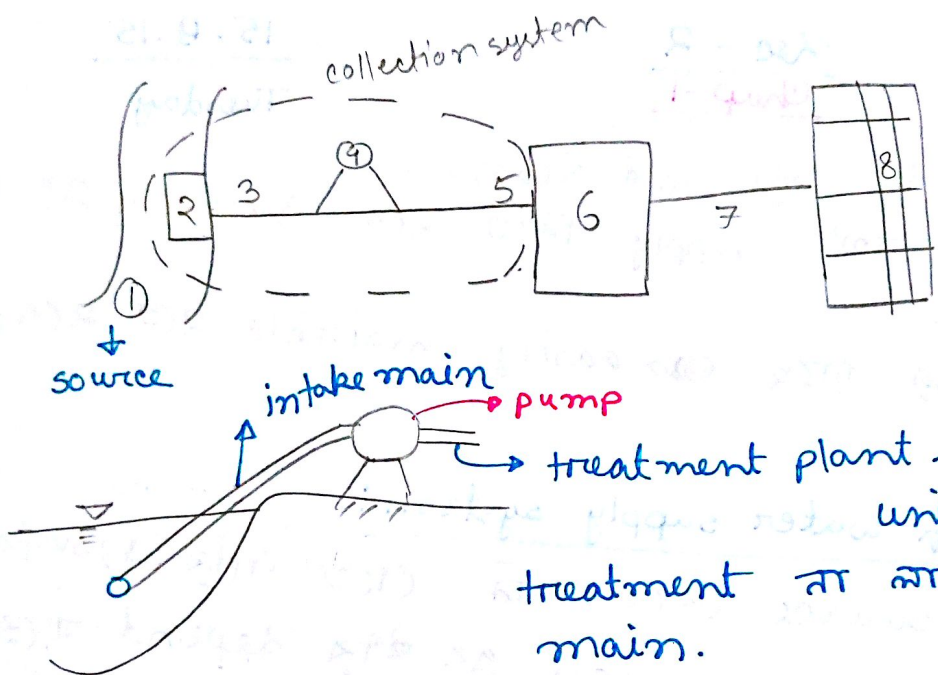 collection system
2 3 4 5 6 7 8
1
source
intake main
pump
treatment plant.
uni
treatment না লা
main.